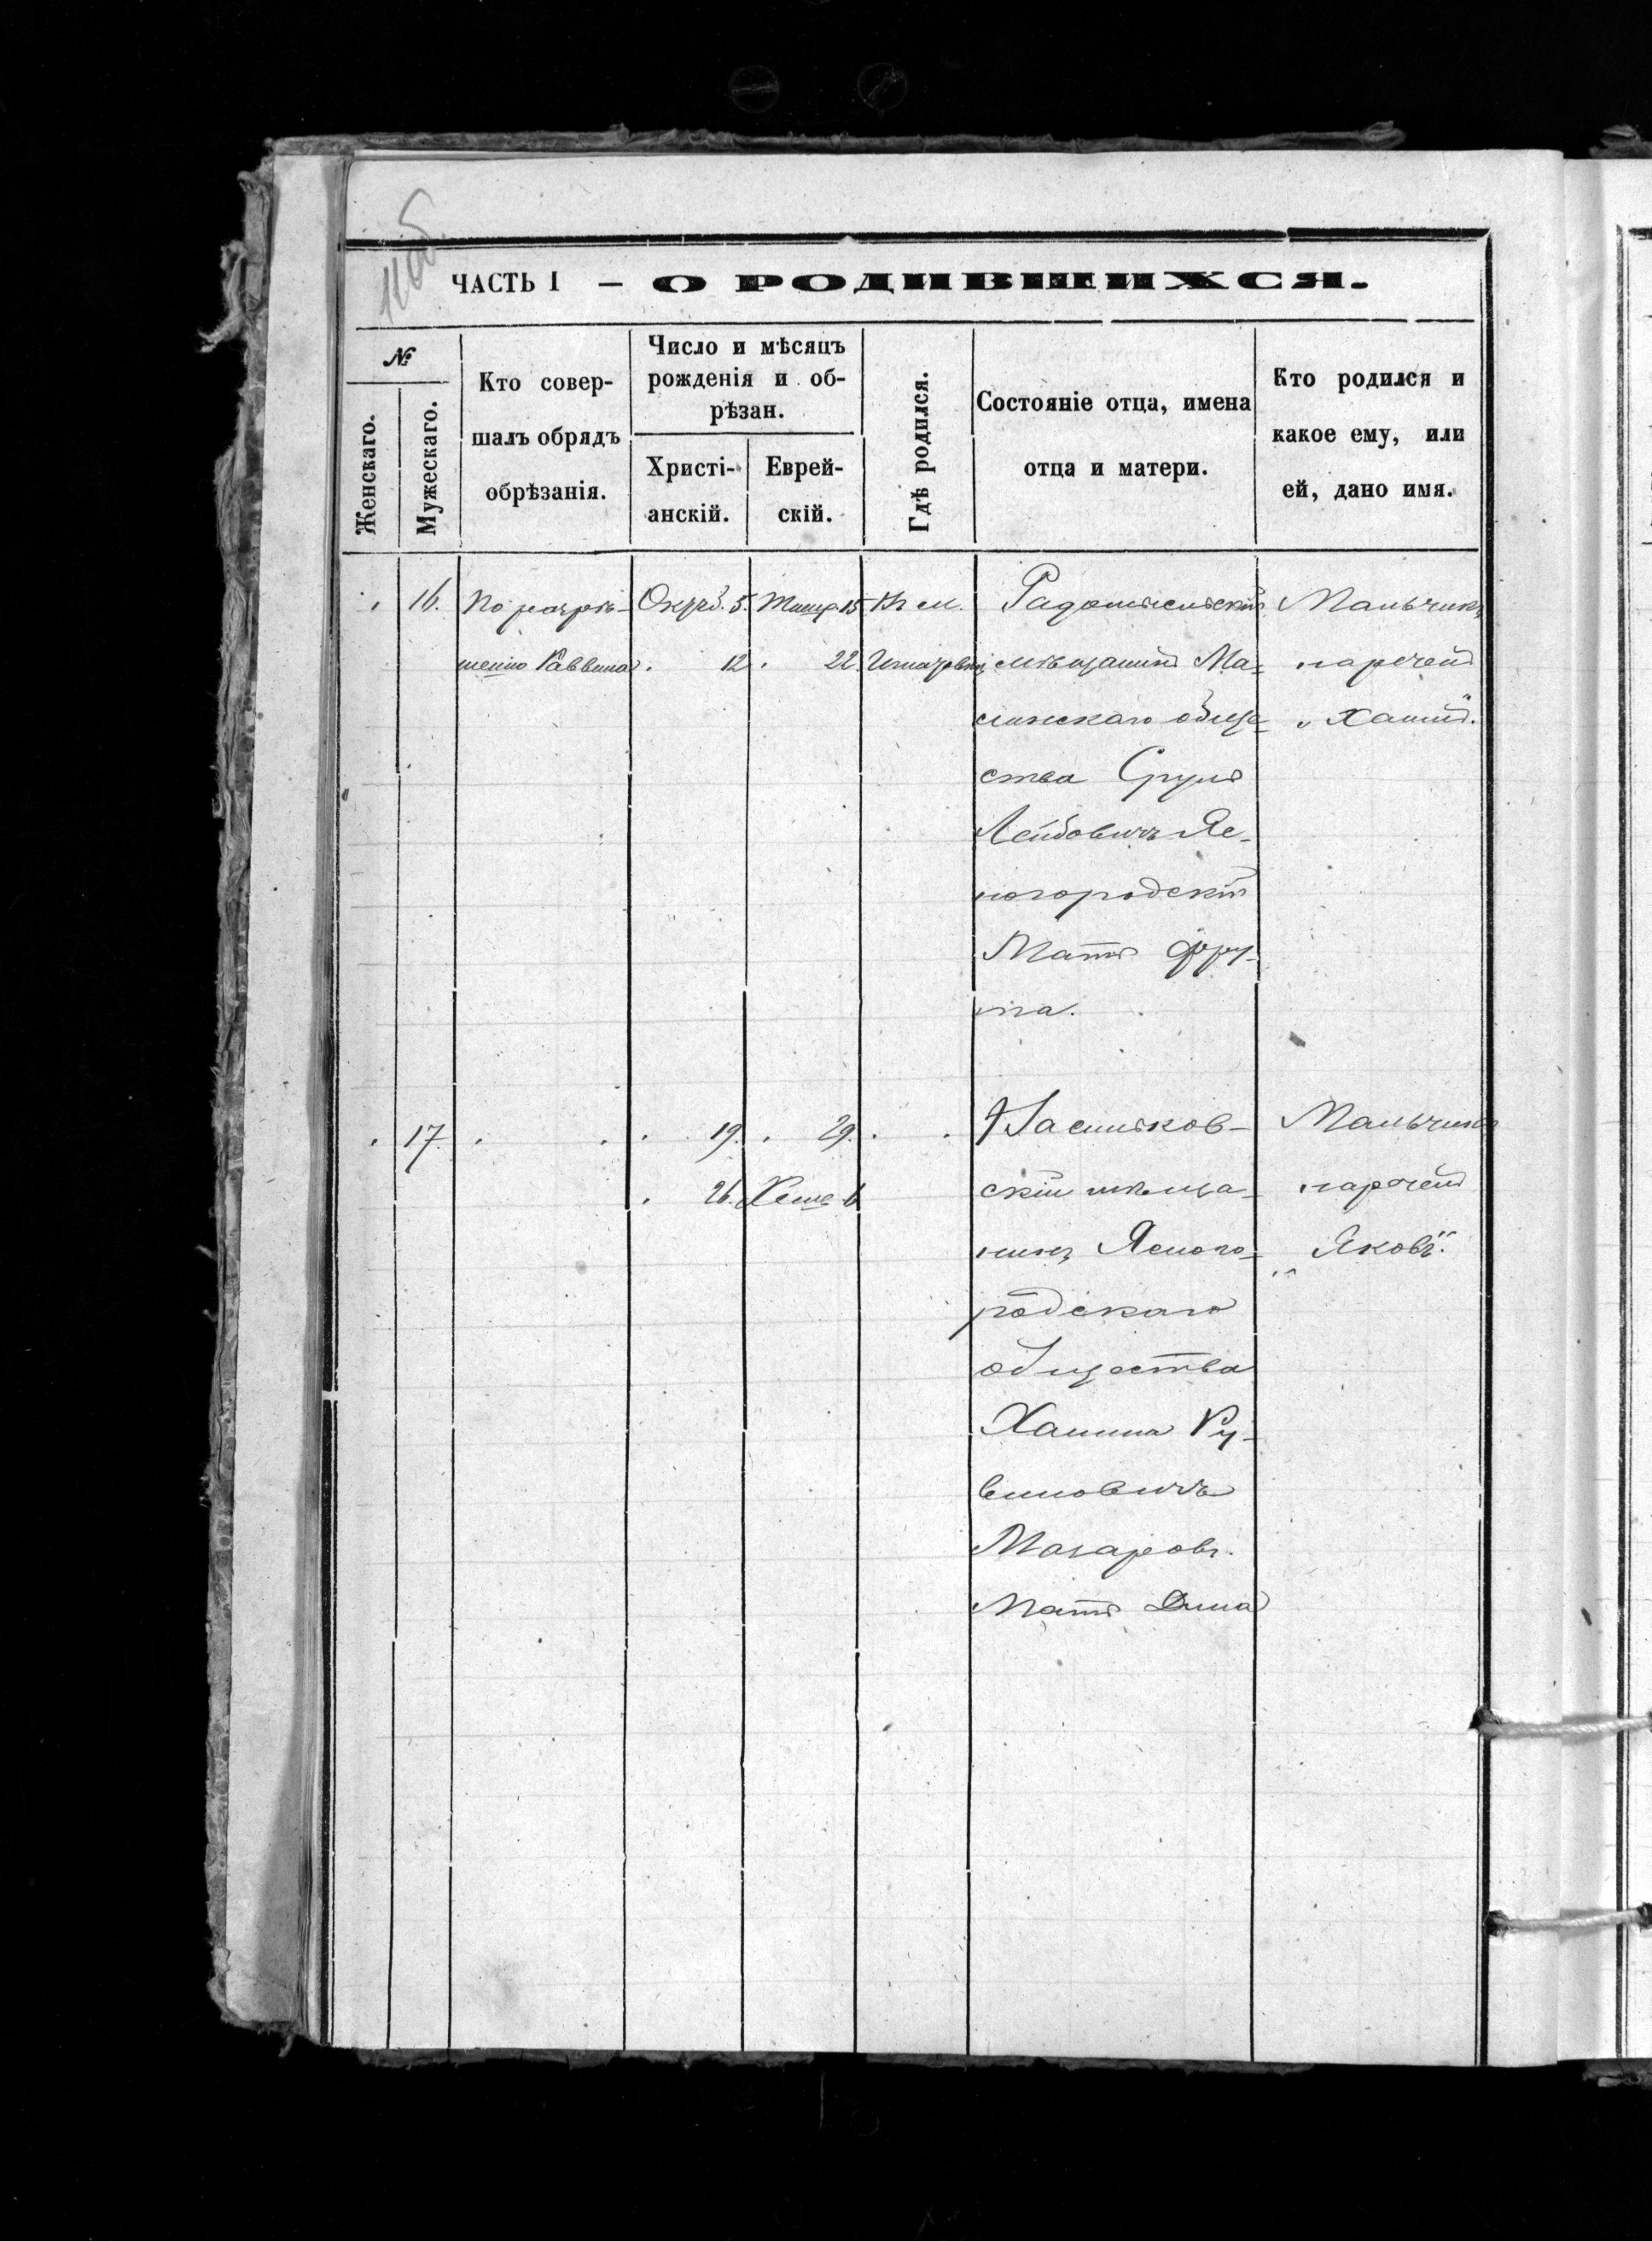 11об.
ЧАСТЬ I — О РОДИВШИХСЯ.
№
Женскаго.
Мужескаго.
Кто совер-
шалъ обрядъ
обрѣзанія.
Число и мѣсяцъ
рожденія и об-
рѣзан.
Христі-
анскій.
Еврей-
скій.
Гдѣ родился.
Состояніе отца, имена
отца и матери.
Кто родился и
какое ему, или
ей, дано имя.
16.
По разрѣ-
шенію Раввина
Октяб. 5.
12
Тишр. 15
22.
Въ м.
Игнатовкѣ
Радомысльскій
мѣщанинъ Ма-
линскаго обще-
ства Сруль
Лейбовичъ Яс-
ногородскій
Мать Фру-
ма.
Мальчикъ
нареченъ
„Хаимъ".
17.
19.
26.
29.
Хешв. 6
Васильков-
скій мѣща-
нинъ Ясного-
родскаго
общества
Ханина Ру-
виновичъ
Макаровъ.
Мать Дина
Мальчикъ
нареченъ
„Яковъ".